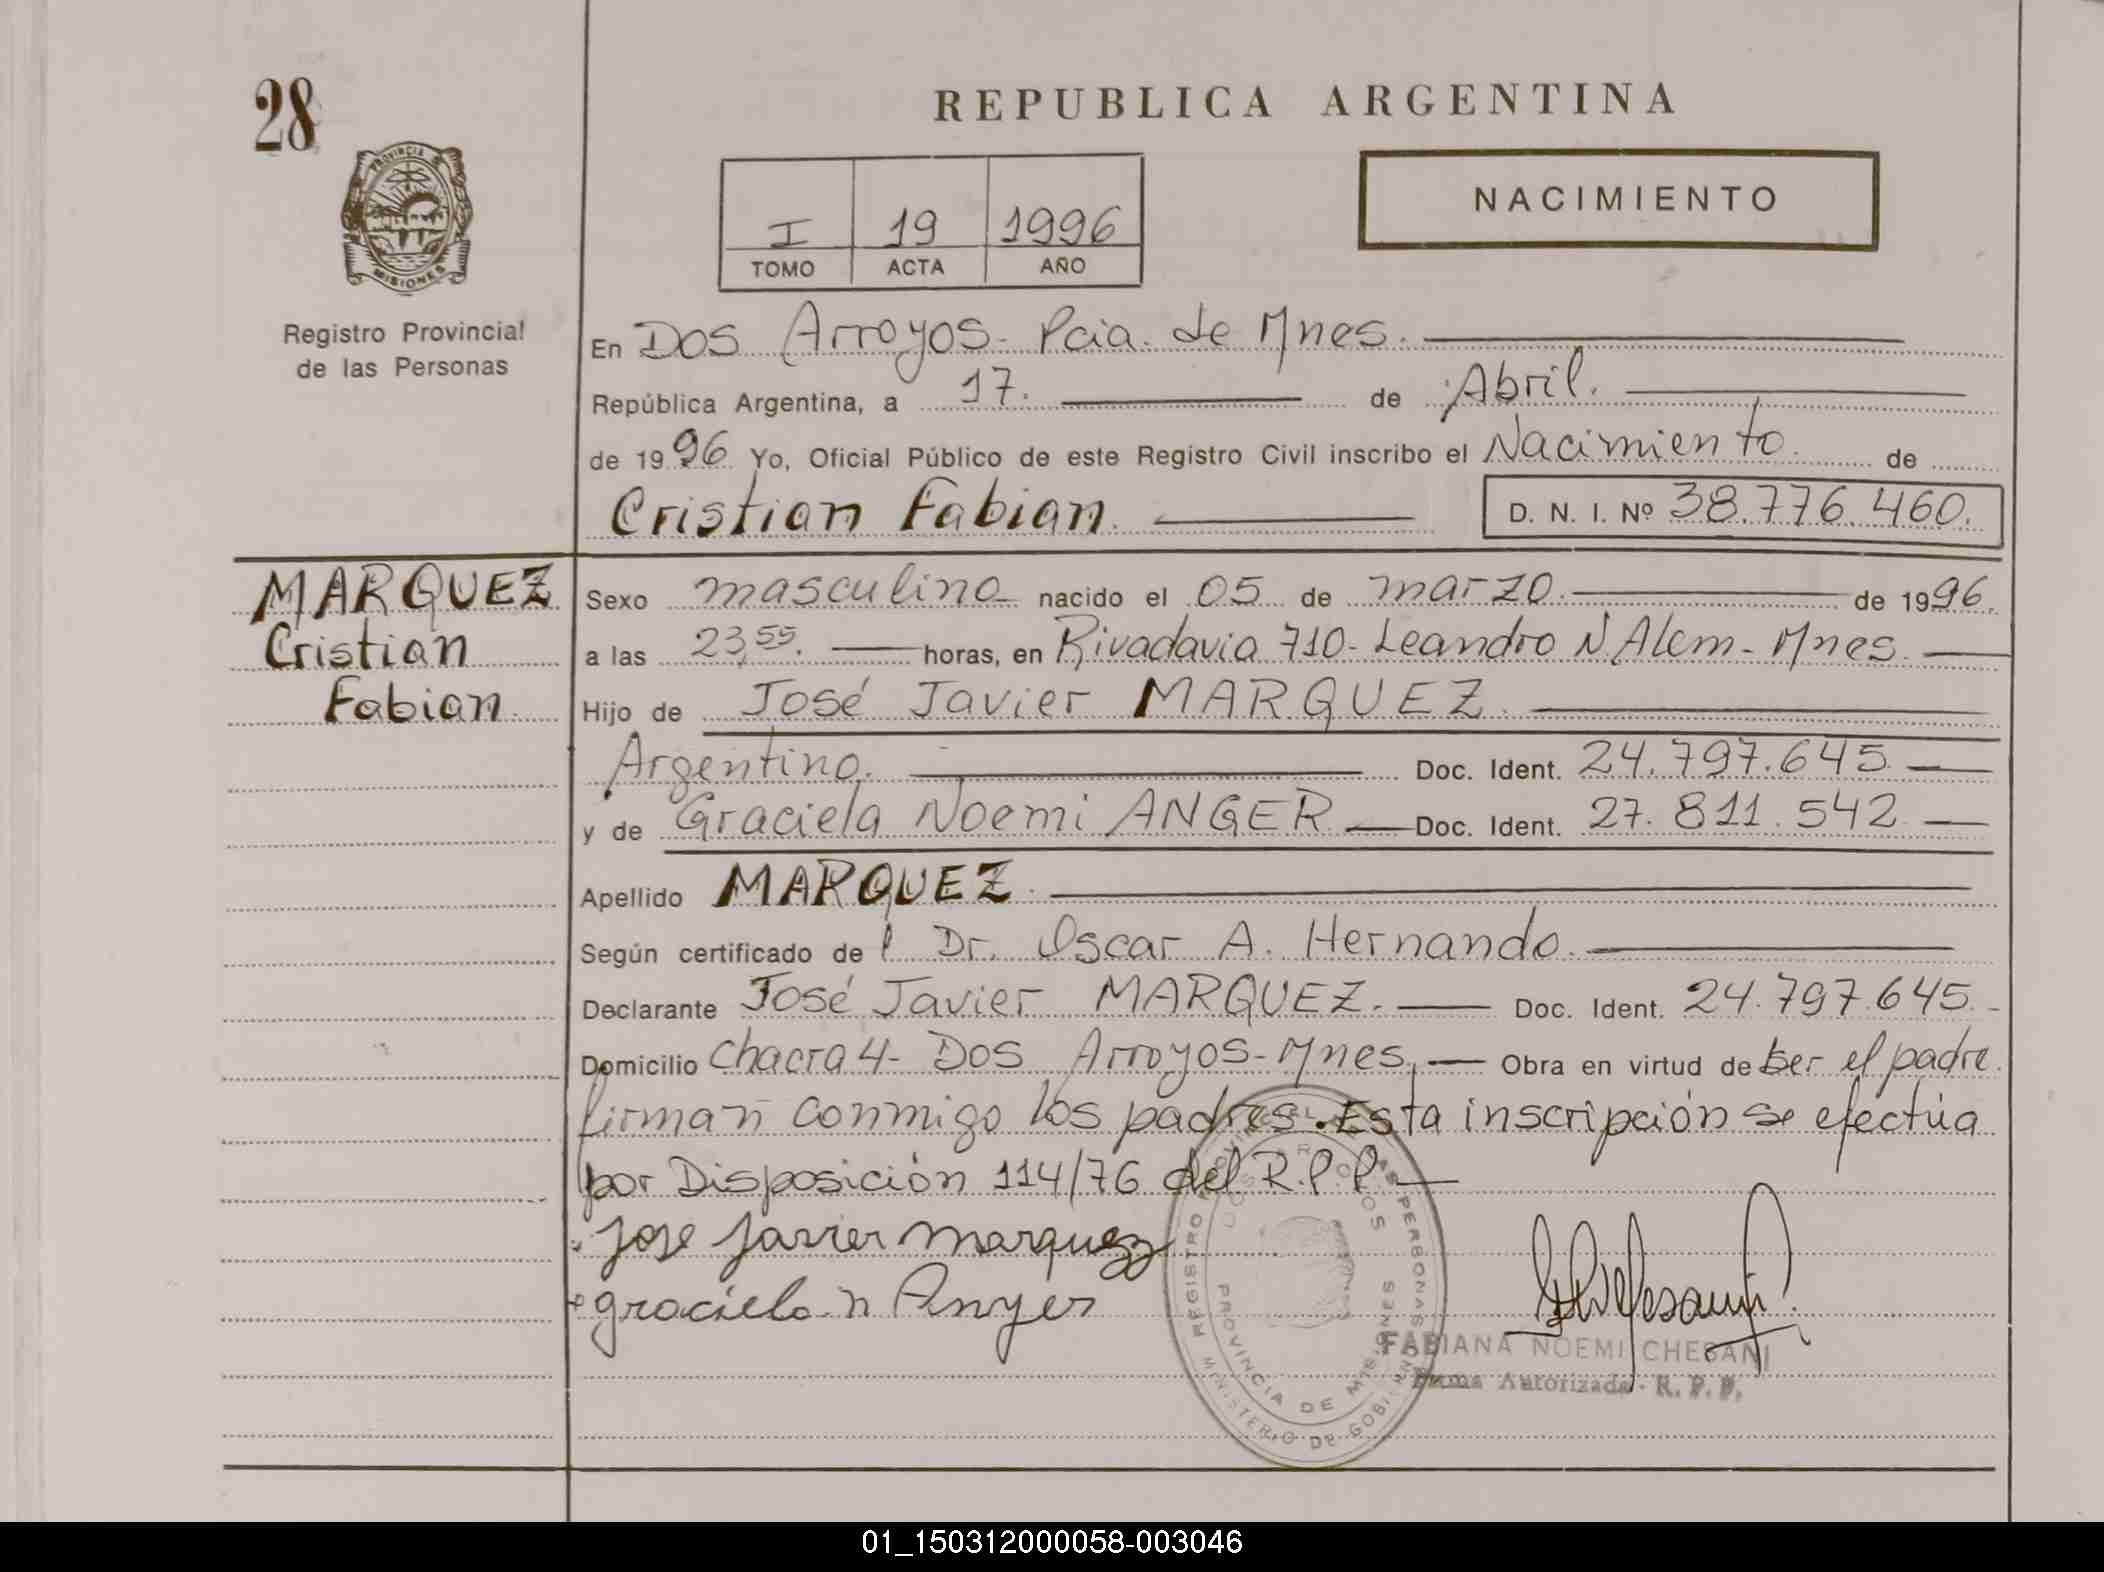 28
REPUBLICA ARGENTINA
PROVINCIA DE MISIONES
NACIMIENTO
I 19 1996
TOMO ACTA AÑO
Registro Provincial
de las Personas
En Dos Arroyos - Pcia. de Mnes.
República Argentina, a 17. de Abril.
de 1996 Yo, Oficial Público de este Registro Civil inscribo el Nacimiento de
Cristian Fabian. D. N. I. Nº 38.776.460.
MARQUEZ
Cristian
Fabian.
Sexo masculino nacido el 05 de marzo. de 1996.
a las 23,55. horas, en Rivadavia 710 - Leandro N. Alem - Mnes.
Hijo de José Javier MARQUEZ.
Argentino. Doc. Ident. 24.797.645
y de Graciela Noemi ANGER Doc. Ident. 27.811.542
Apellido MARQUEZ.
Según certificado del Dr. Oscar A. Hernando.
Declarante José Javier MARQUEZ. Doc. Ident. 24.797.645.
Domicilio Chacra 4 - Dos Arroyos - Mnes, Obra en virtud de ser el padre
firman conmigo los padres. Esta inscripción se efectúa
por Disposición 114/76 del R.P.P.
Jose Javier Marquez
graciela n Anyer
REGISTRO PROVINCIAL DE LAS PERSONAS
DOS ARROYOS
PROVINCIA DE MISIONES
MINISTERIO DE GOBIERNO
FABIANA NOEMI CHESANI
Firma Autorizada - R. P. P.
01_150312000058-003046